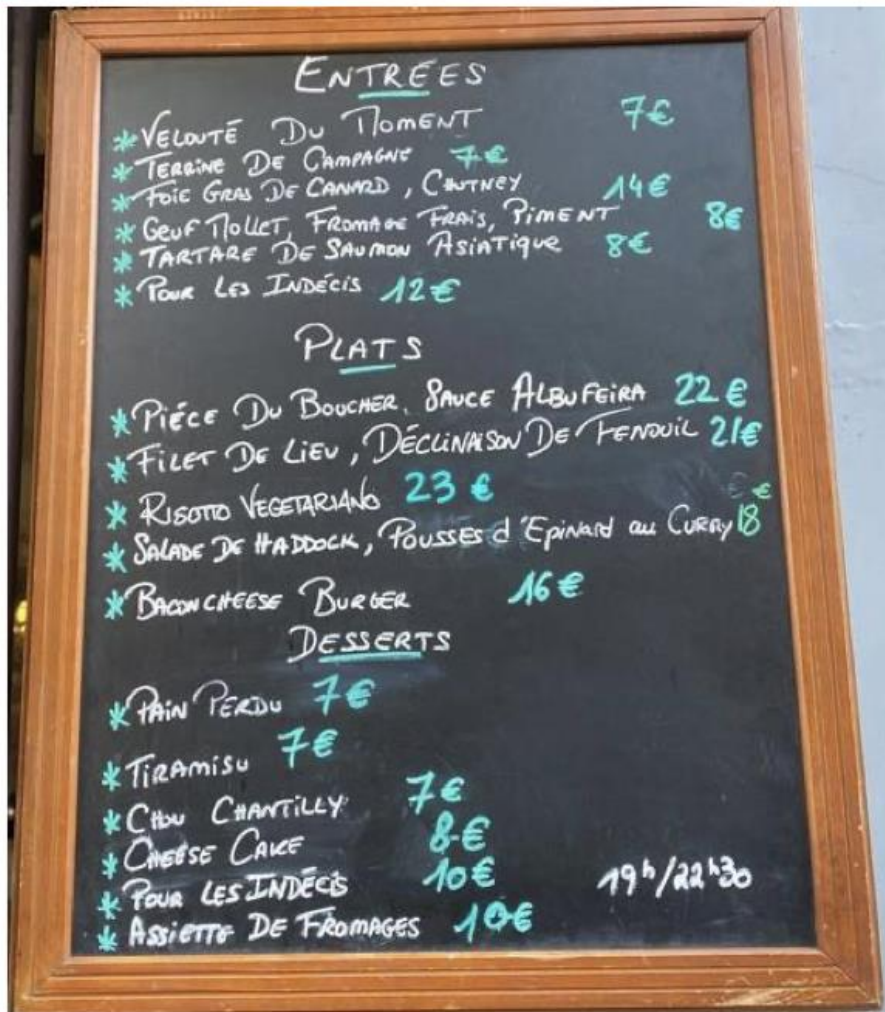 ENTRÉES
* VELOUTÉ DU MOMENT 7€
* TERRINE DE CAMPAGNE 7€
* FOIE GRAS DE CANARD, CHUTNEY 14€
* OEUF MOLLET, FROMAGE FRAIS, PIMENT 8€
* TARTARE DE SAUMON ASIATIQUE 8€
* POUR LES INDÉCIS 12€
PLATS
* PIÉCE DU BOUCHER, SAUCE ALBUFEIRA 22€
* FILET DE LIEU, DÉCLINAISON DE FENOUIL 21€
* RISOTTO VEGETARIANO 23€
* SALADE DE HADDOCK, POUSSES d'EPINARD au CURRY 18€
* BACON CHEESE BURGER 16€
DESSERTS
* PAIN PERDU 7€
* TIRAMISU 7€
* CHOU CHANTILLY 7€
* CHEESE CAKE 8€
* POUR LES INDÉCIS 10€
* ASSIETTE DE FROMAGES 10€
19h/22h30